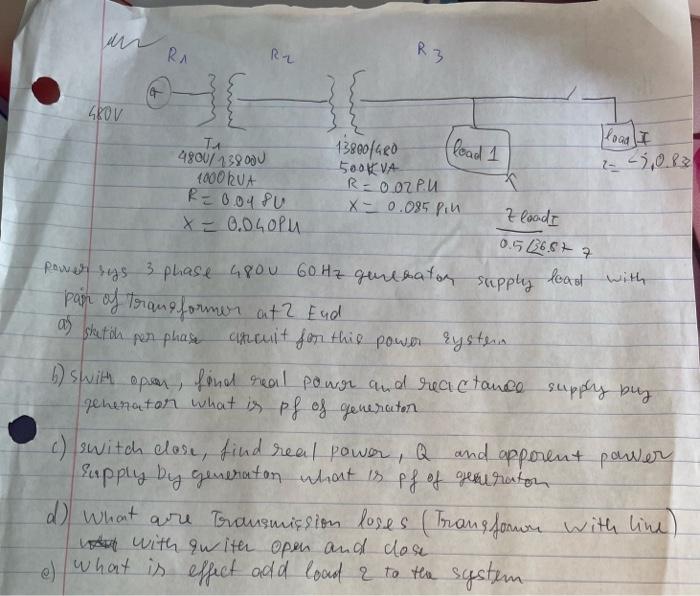 R1 R2 R3
480V
T1
480V/13800V
1000kVA
R = 0.04 PU
X = 0.040PU
13800/480
500KVA
R = 0.02P.U
X = 0.085 P.U
load 1
Z load I
0.5∠36.87
load II
z = -j,0.83
Power sys 3 phase 480V 60Hz generator supply load with
pair of Transformer at 2 End
a) sketch per phase circuit for this power system
b) swith open, find real power and reactance supply buy
generator what is pf of generator
c) switch close, find real power, Q and apporent power
supply by generator what is pf of generator
d) What are Transmission loses (Transformer with line)
with switch open and close
e) what is effect add load 2 to the system